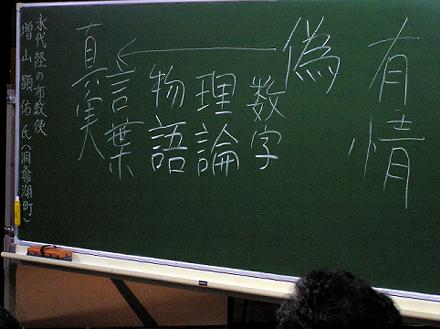 有情
偽
数字
理論
物語
言葉
真実
永代経の布教使
増山顕佑氏(洞爺湖町)